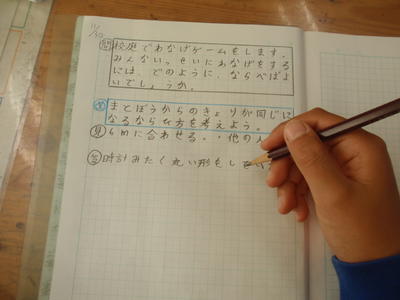 11/30
問 校庭でわなげゲームをします。
みんないっせいにわなげをする
には、どのように、ならべばよ
いでしょうか。
め まとぼうからのきょりが同じに
なるならび方を考えよう。
見 6mに合わせる。・他の人
答 時計みたく丸い形をし